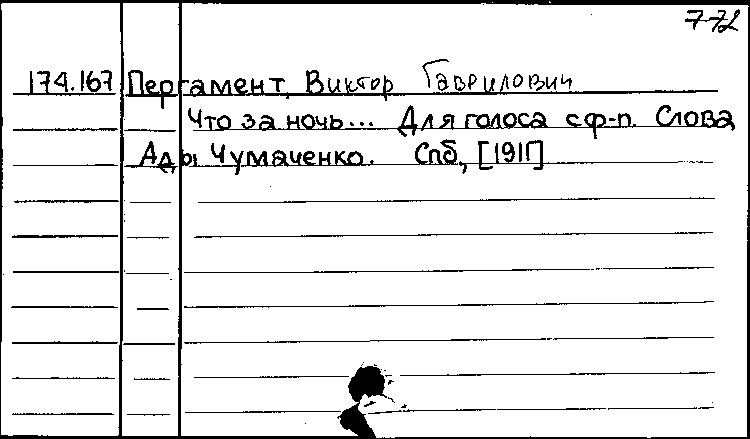 7-72
174.167 Пергамент, Виктор Гаврилович
Что за ночь... Для голоса с ф-п. Слова
Ады Чумаченко. Спб, [1911]